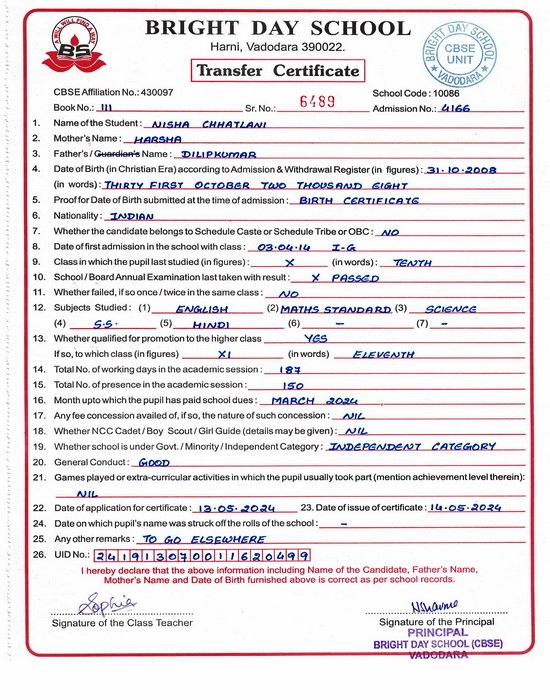 A WILL WILL FIND A WAY
BS
BRIGHT DAY SCHOOL
Harni, Vadodara 390022.
Transfer Certificate
BRIGHT DAY SCHOOL
CBSE
UNIT
VADODARA
CBSE Affiliation No.: 430097 School Code : 10086
Book No.: III Sr. No.: 6489 Admission No.: 4166
1. Name of the Student : NISHA CHHATLANI
2. Mother's Name : HARSHA
3. Father's / Guardian's Name : DILIPKUMAR
4. Date of Birth (in Christian Era) according to Admission & Withdrawal Register (in figures) : 31-10-2008
(in words) : THIRTY FIRST OCTOBER TWO THOUSAND EIGHT
5. Proof for Date of Birth submitted at the time of admission : BIRTH CERTIFICATE
6. Nationality : INDIAN
7. Whether the candidate belongs to Schedule Caste or Schedule Tribe or OBC : NO
8. Date of first admission in the school with class : 03-04-14 I-G
9. Class in which the pupil last studied (in figures) : X (in words) : TENTH
10. School / Board Annual Examination last taken with result : X PASSED
11. Whether failed, if so once / twice in the same class : NO
12. Subjects Studied : (1) ENGLISH (2) MATHS STANDARD (3) SCIENCE
(4) S.S. (5) HINDI (6) – (7) –
13. Whether qualified for promotion to the higher class YES
If so, to which class (in figures) XI (in words) ELEVENTH
14. Total No. of working days in the academic session : 187
15. Total No. of presence in the academic session : 150
16. Month upto which the pupil has paid school dues : MARCH 2024
17. Any fee concession availed of, if so, the nature of such concession : NIL
18. Whether NCC Cadet / Boy Scout / Girl Guide (details may be given) : NIL
19. Whether school is under Govt. / Minority / Independent Category : INDEPENDENT CATEGORY
20. General Conduct : GOOD
21. Games played or extra-curricular activities in which the pupil usually took part (mention achievement level therein):
NIL
22. Date of application for certificate : 13-05-2024 23. Date of issue of certificate : 14-05-2024
24. Date on which pupil's name was struck off the rolls of the school : –
25. Any other remarks : TO GO ELSEWHERE
26. UID No.: 241913070011620499
I hereby declare that the above information including Name of the Candidate, Father's Name,
Mother's Name and Date of Birth furnished above is correct as per school records.
Sophia
Signature of the Class Teacher Signature of the Principal
PRINCIPAL
BRIGHT DAY SCHOOL (CBSE)
VADODARA